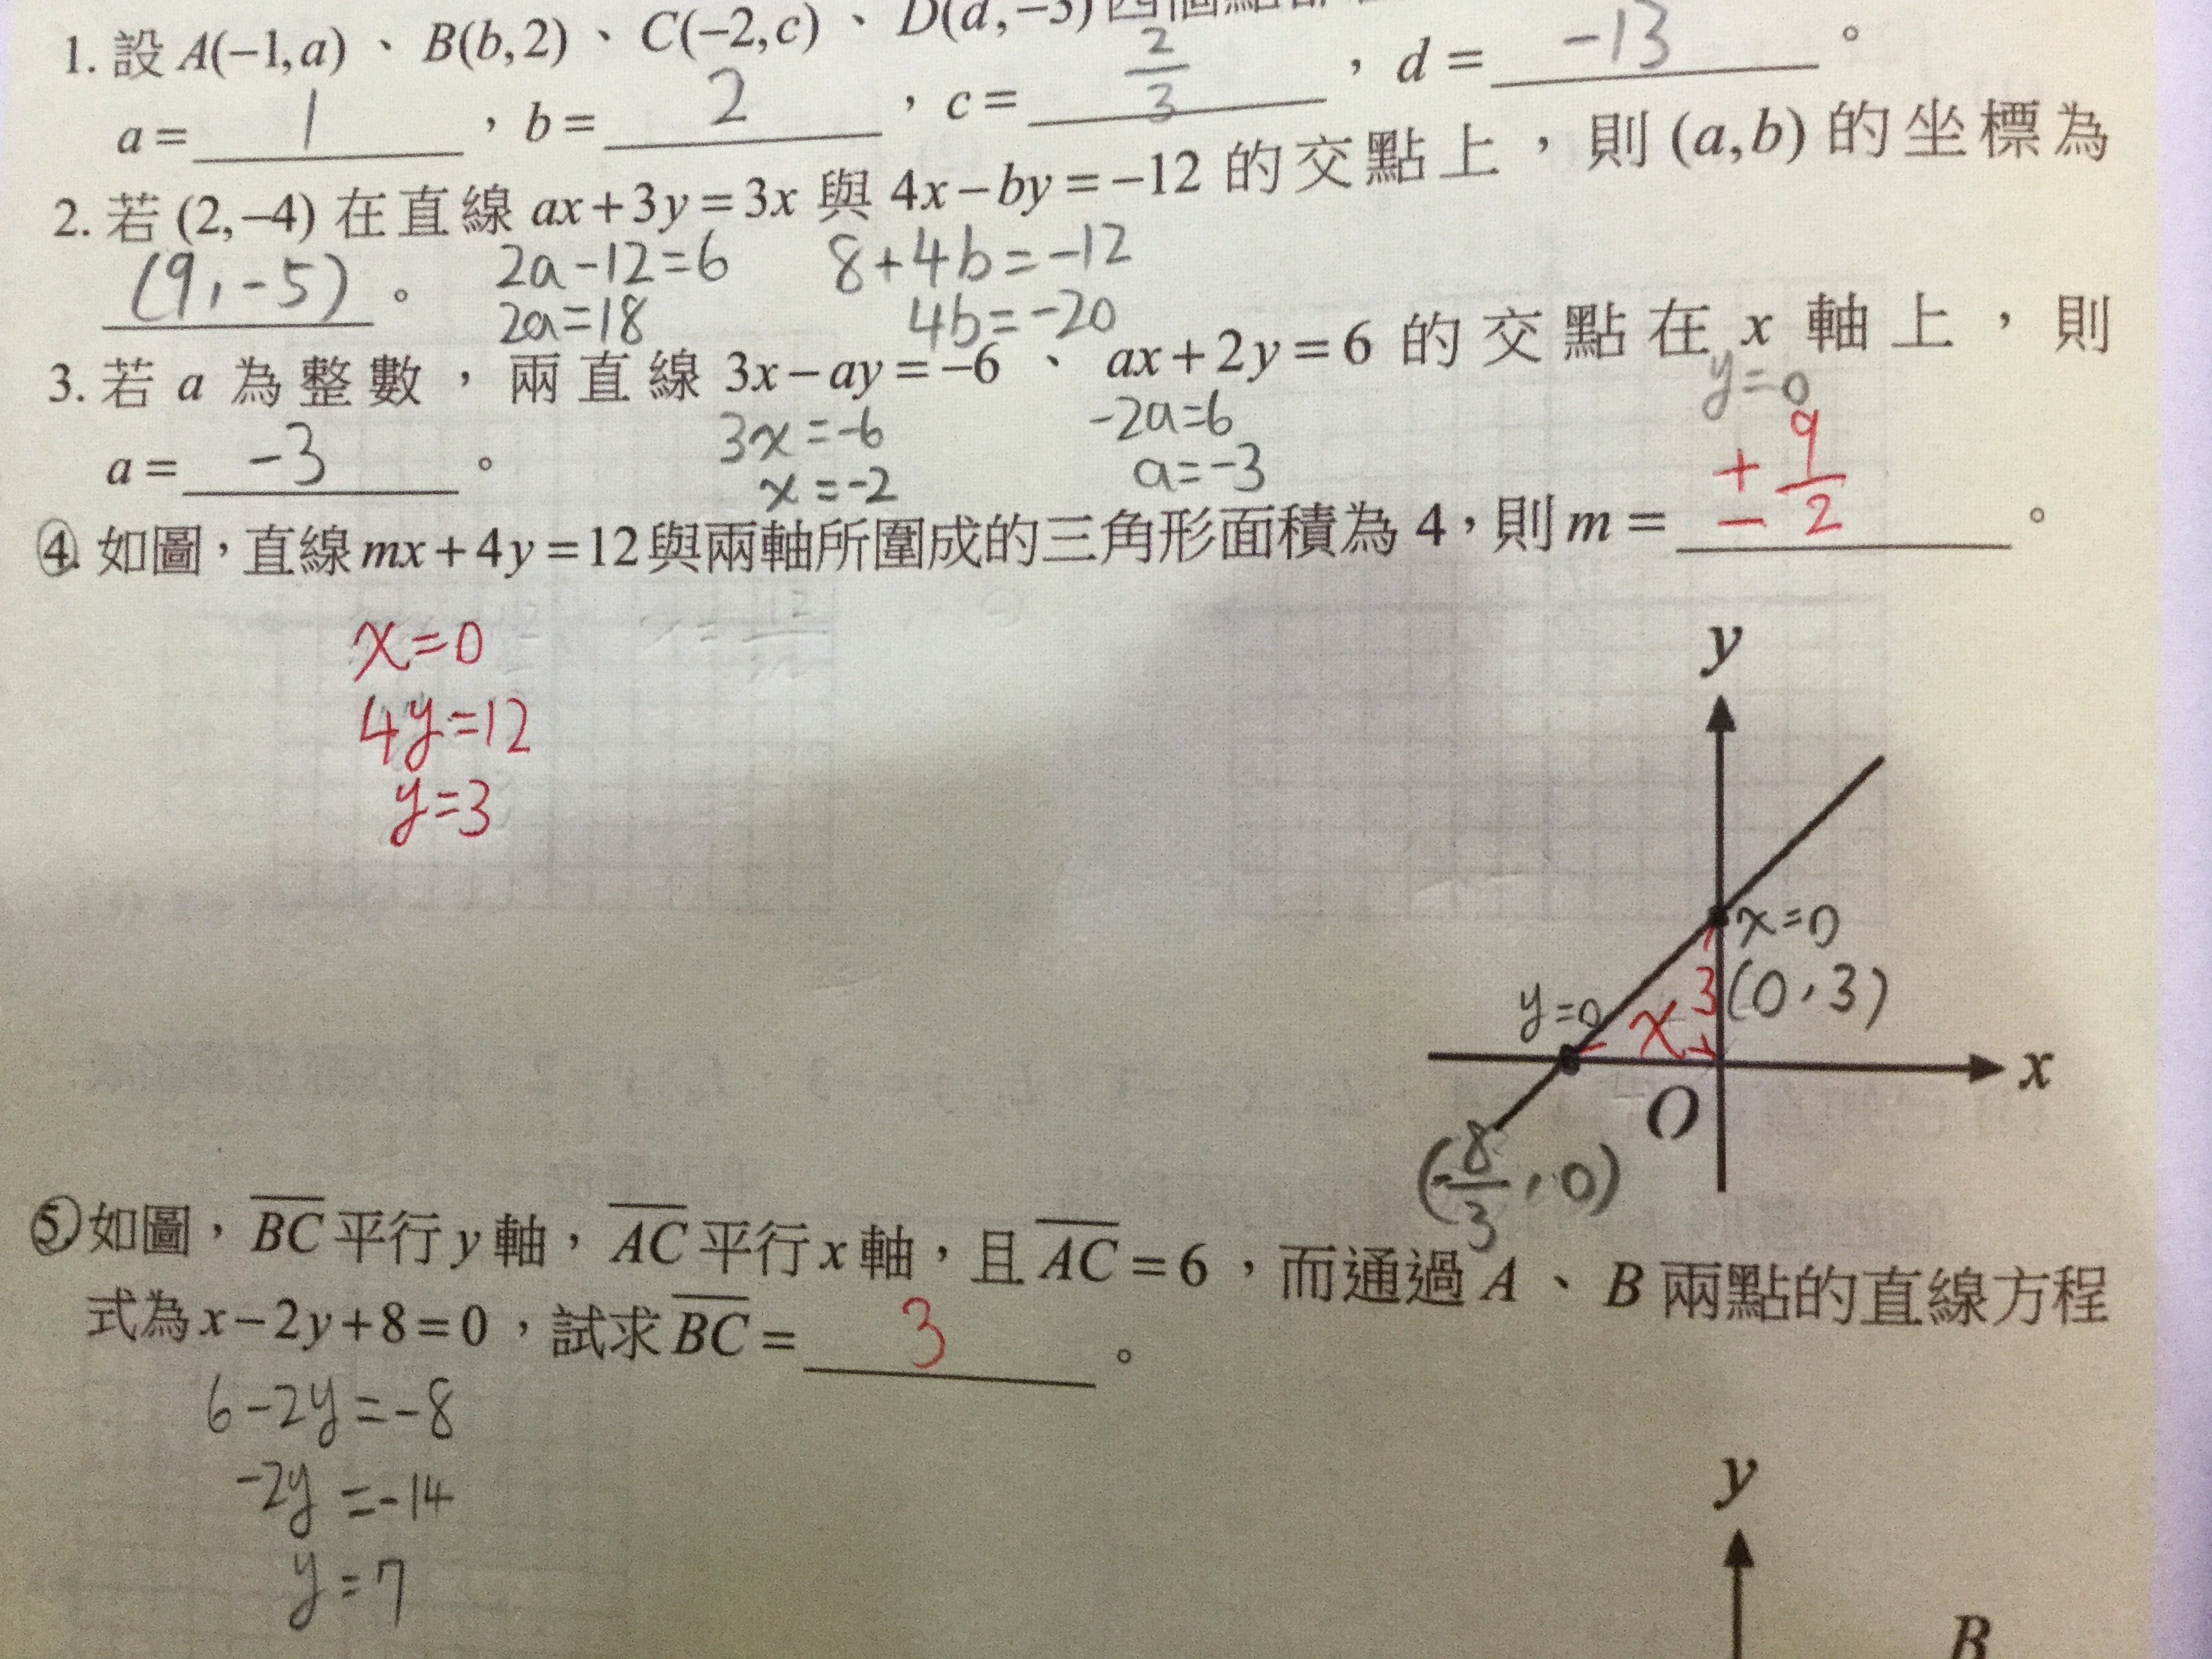 1. 設 A(−1,a)、B(b,2)、C(−2,c)、D(d,−3)四個點都
a= 1 ,b= 2 ,c= 2/3 ,d= -13 。
2. 若 (2,−4) 在直線 ax+3y=3x 與 4x−by=−12 的交點上,則 (a,b) 的坐標為
(9,-5) 。 2a-12=6 8+4b=-12
2a=18 4b=-20
3. 若 a 為整數,兩直線 3x−ay=−6 、 ax+2y=6 的交點在 x 軸上,則
y=0
a= -3 。 3x=-6 -2a=6
x=-2 a=-3
4. 如圖,直線 mx+4y=12 與兩軸所圍成的三角形面積為 4,則 m= +- 9/2 。
x=0
4y=12
y=3
y
x=0
3 (0,3)
y=0 x
x
O
(-8/3,0)
5. 如圖,B̅C̅ 平行 y 軸,A̅C̅ 平行 x 軸,且 A̅C̅=6,而通過 A、B 兩點的直線方程
式為 x−2y+8=0,試求 B̅C̅= 3 。
6-2y=-8
-2y=-14
y=7
y
B